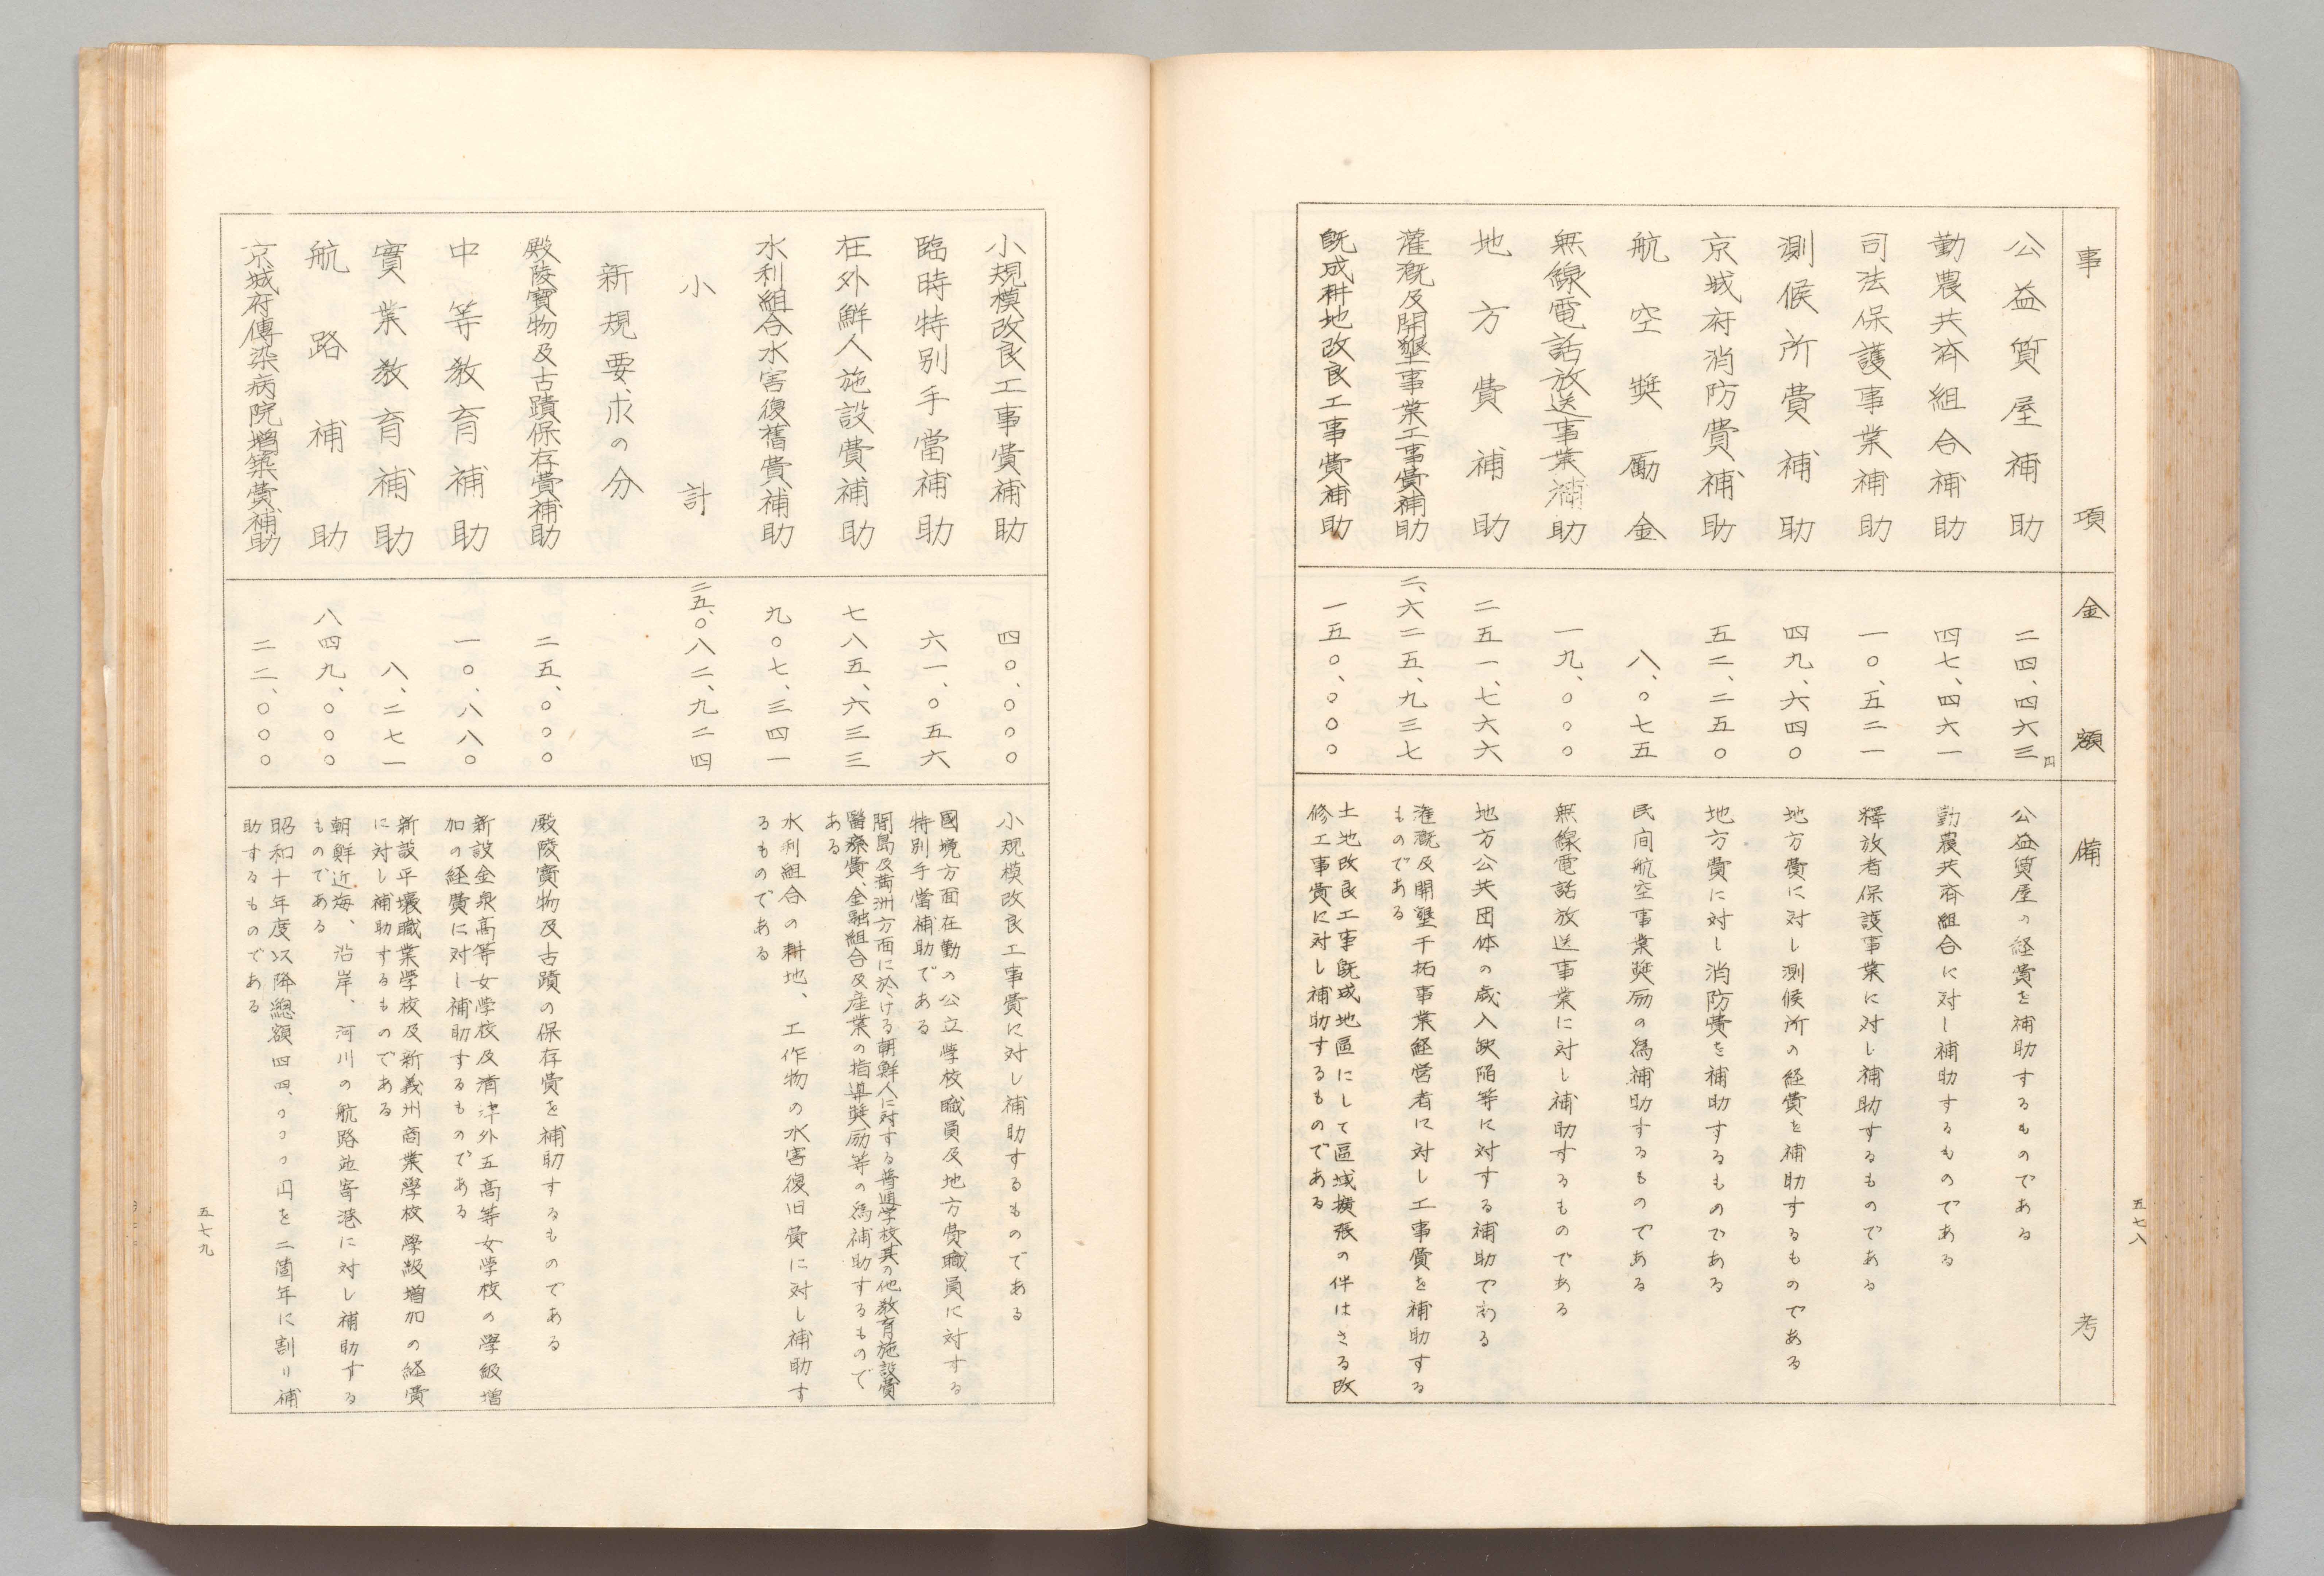 五七八
事項　金額　備考
公益質屋補助　二四、四六三円　公益質屋の経費を補助するものである
勤農共済組合補助　四七、四六一　勤農共斉組合に対し補助するものである
司法保護事業補助　一〇、五二一　釋放者保護事業に対し補助するものである
測候所費補助　四九、六四〇　地方費に対し測候所の経費を補助するものである
京城府消防費補助　五二、二五〇　地方費に対し消防費を補助するものである
航空奬勵金　八、〇七五　民间航空事業奬励の爲補助するものである
無線電話放送事業補助　一九、〇〇〇　無線電話放送事業に対し補助するものである
地方費補助　二五一、七六六　地方公共団体の歳入缺陥等に対する補助である
灌漑及開墾事業工事費補助　二、六二五、九三七　灌漑及開墾干拓事業経営者に対し工事費を補助する
ものである
既成耕地改良工事費補助　一五〇、〇〇〇　土地改良工事既成地區にして區域擴張の伴はさる改
修工事費に対し補助するものである
小規模改良工事費補助　四〇、〇〇〇　小規模改良工事費に対し補助するものである
臨時特別手當補助　六一、〇五六　國境方面在勤の公立学校職員及地方費職員に対する
特別手當補助である
在外鮮人施設費補助　七八五、六三三　間島及満洲方面に於ける朝鮮人に対する普通学校其の他教育施設費
醫療費、金融組合及産業の指導奬励等の爲補助するもので
ある
水利組合水害復舊費補助　九〇七、三四一　水利組合の耕地、工作物の水害復旧費に対し補助す
るものである
小計　二五、〇八二、九二四
新規要求の分
殿陵寶物及古蹟保存費補助　二五、〇〇〇　殿陵寶物及古蹟の保存費を補助するものである
中等教育補助　一〇、八八〇　新設金泉高等女学校及清津外五高等女学校の學級増
加の経費に対し補助するものである
實業教育補助　八、二七一　新設平壤職業学校及新義州商業學校學級増加の経費
に対し補助するものである
航路補助　八四九、〇〇〇　朝鮮近海、沿岸、河川の航路並寄港に対し補助する
ものである
京城府傳染病院増築費補助　二二、〇〇〇　昭和十年度以降總額四四、〇〇〇円を二箇年に割り補
助するものである
五七九